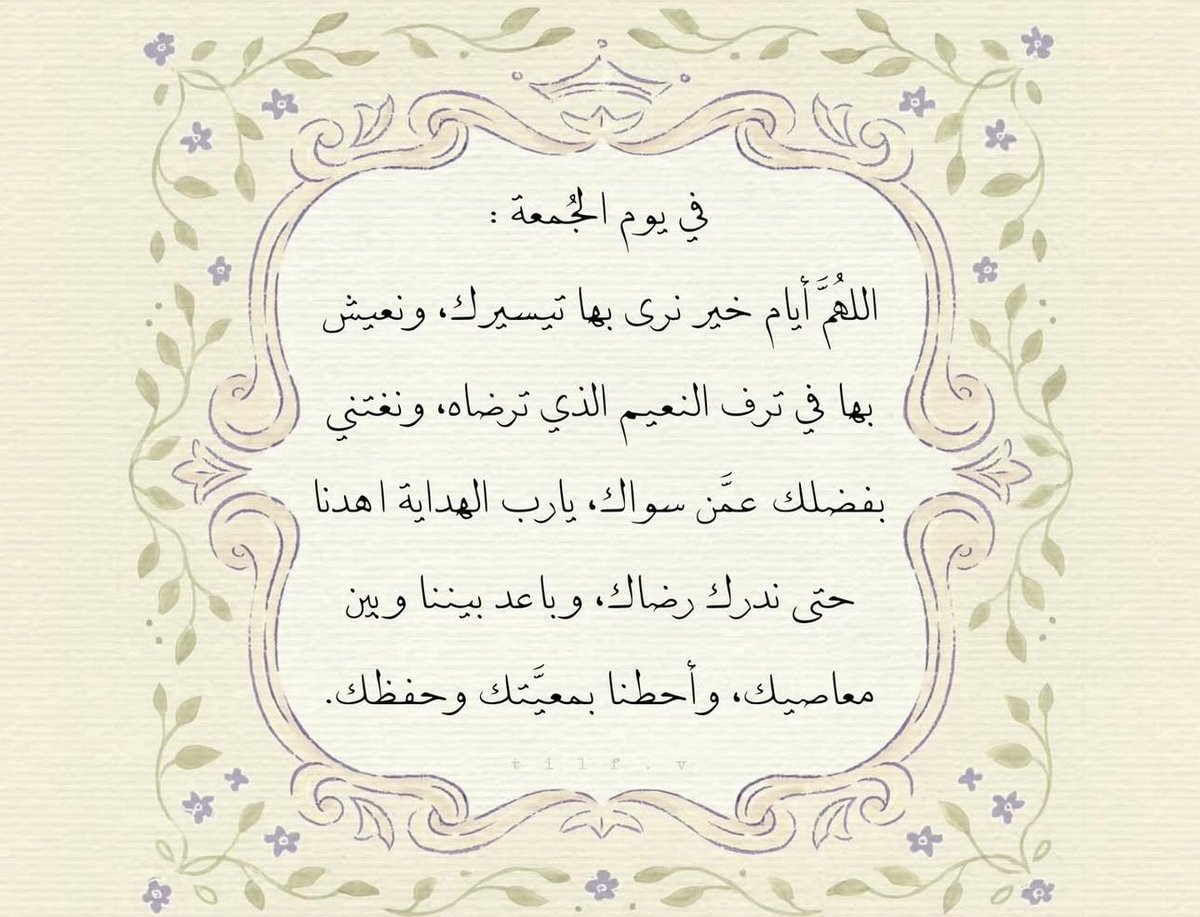 في يوم الجُمعة :
اللهُمَّ أيام خير نرى بها تيسيرك، ونعيش
بها في ترف النعيم الذي ترضاه، ونغتني
بفضلك عمَّن سواك، يارب الهداية اهدنا
حتى ندرك رضاك، وباعد بيننا وبين
معاصيك، وأحطنا بمعيَّتك وحفظك.
tilf.v